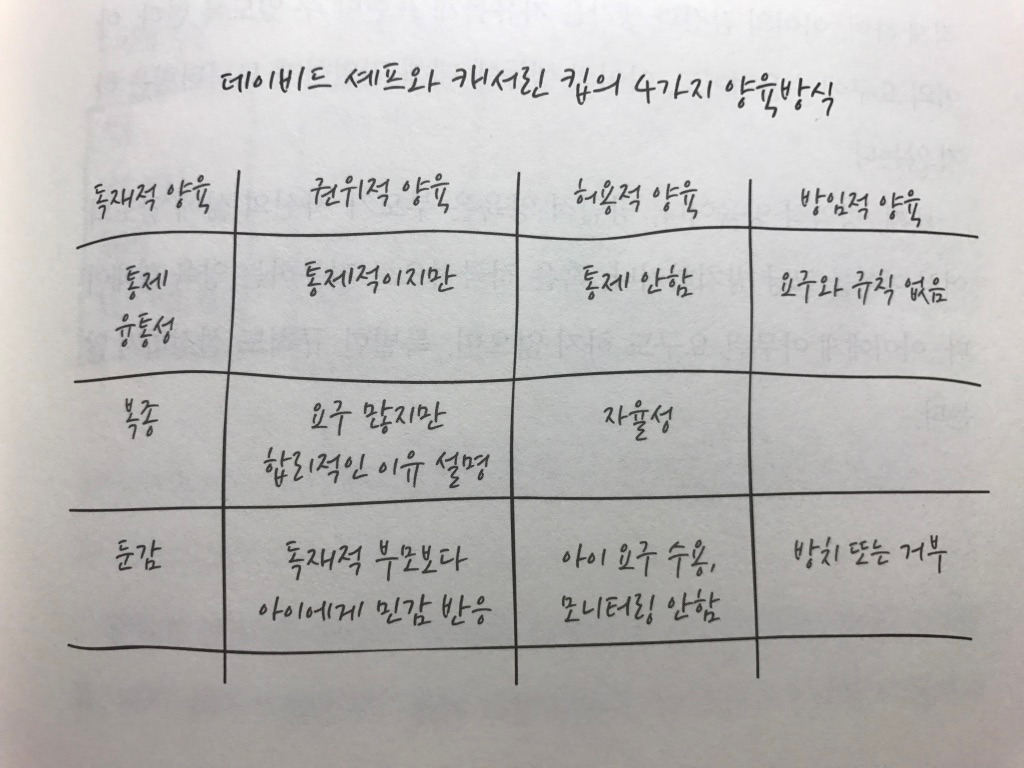 데이비드 셰프와 캐서린 킵의 4가지 양육방식
독재적 양육 권위적 양육 허용적 양육 방임적 양육
통제 통제적이지만 통제 안함 요구와 규칙 없음
융통성
복종 요구 많지만 자율성
합리적인 이유 설명
둔감 독재적 부모보다 아이 요구 수용, 방치 또는 거부
아이에게 민감 반응 모니터링 안함